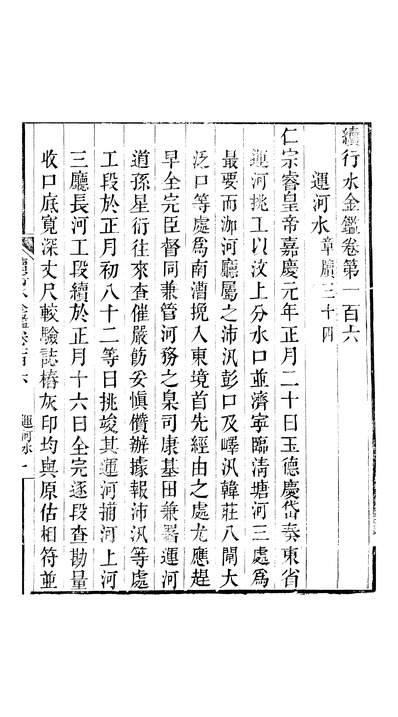 續行水金鑑卷第一百六
運河水 章牘三十四
仁宗睿皇帝嘉慶元年正月二十日玉德慶岱奏東省
運河挑工以汶上分水口並濟寧臨清塘河三處爲
最要而泇河廳屬之沛汛彭口及嶧汛韓莊八閘大
泛口等處爲南漕挽入東境首先經由之處尤應趕
早全完臣督同兼管河務之臬司康基田兼署運河
道孫星衍往來查催嚴飭妥愼儹辦據報沛汛等處
工段於正月初八十二等日挑竣其運河捕河上河
三廳長河工段續於正月十六日全完逐段查勘量
收口底寛深丈尺較驗誌樁灰印均與原估相符並
續行水金鑑卷百六 運河水 一